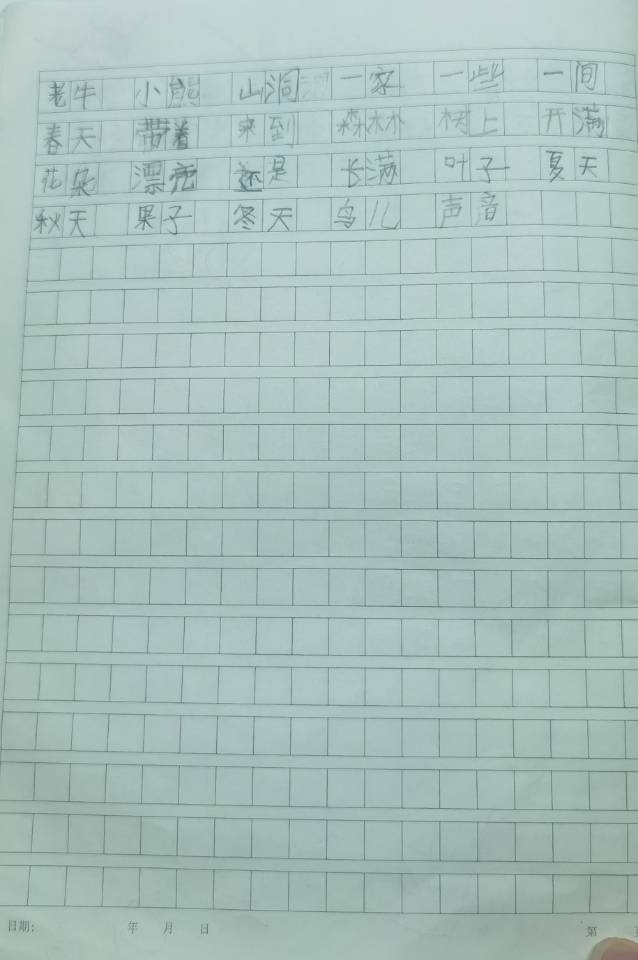 老牛 小熊 山洞 一家 一些 一间
春天 带着 来到 森林 树上 开满
花朵 漂 还是 长满 叶子 夏天
秋天 果子 冬天 鸟儿 声音
日期: 年 月 日 第 页